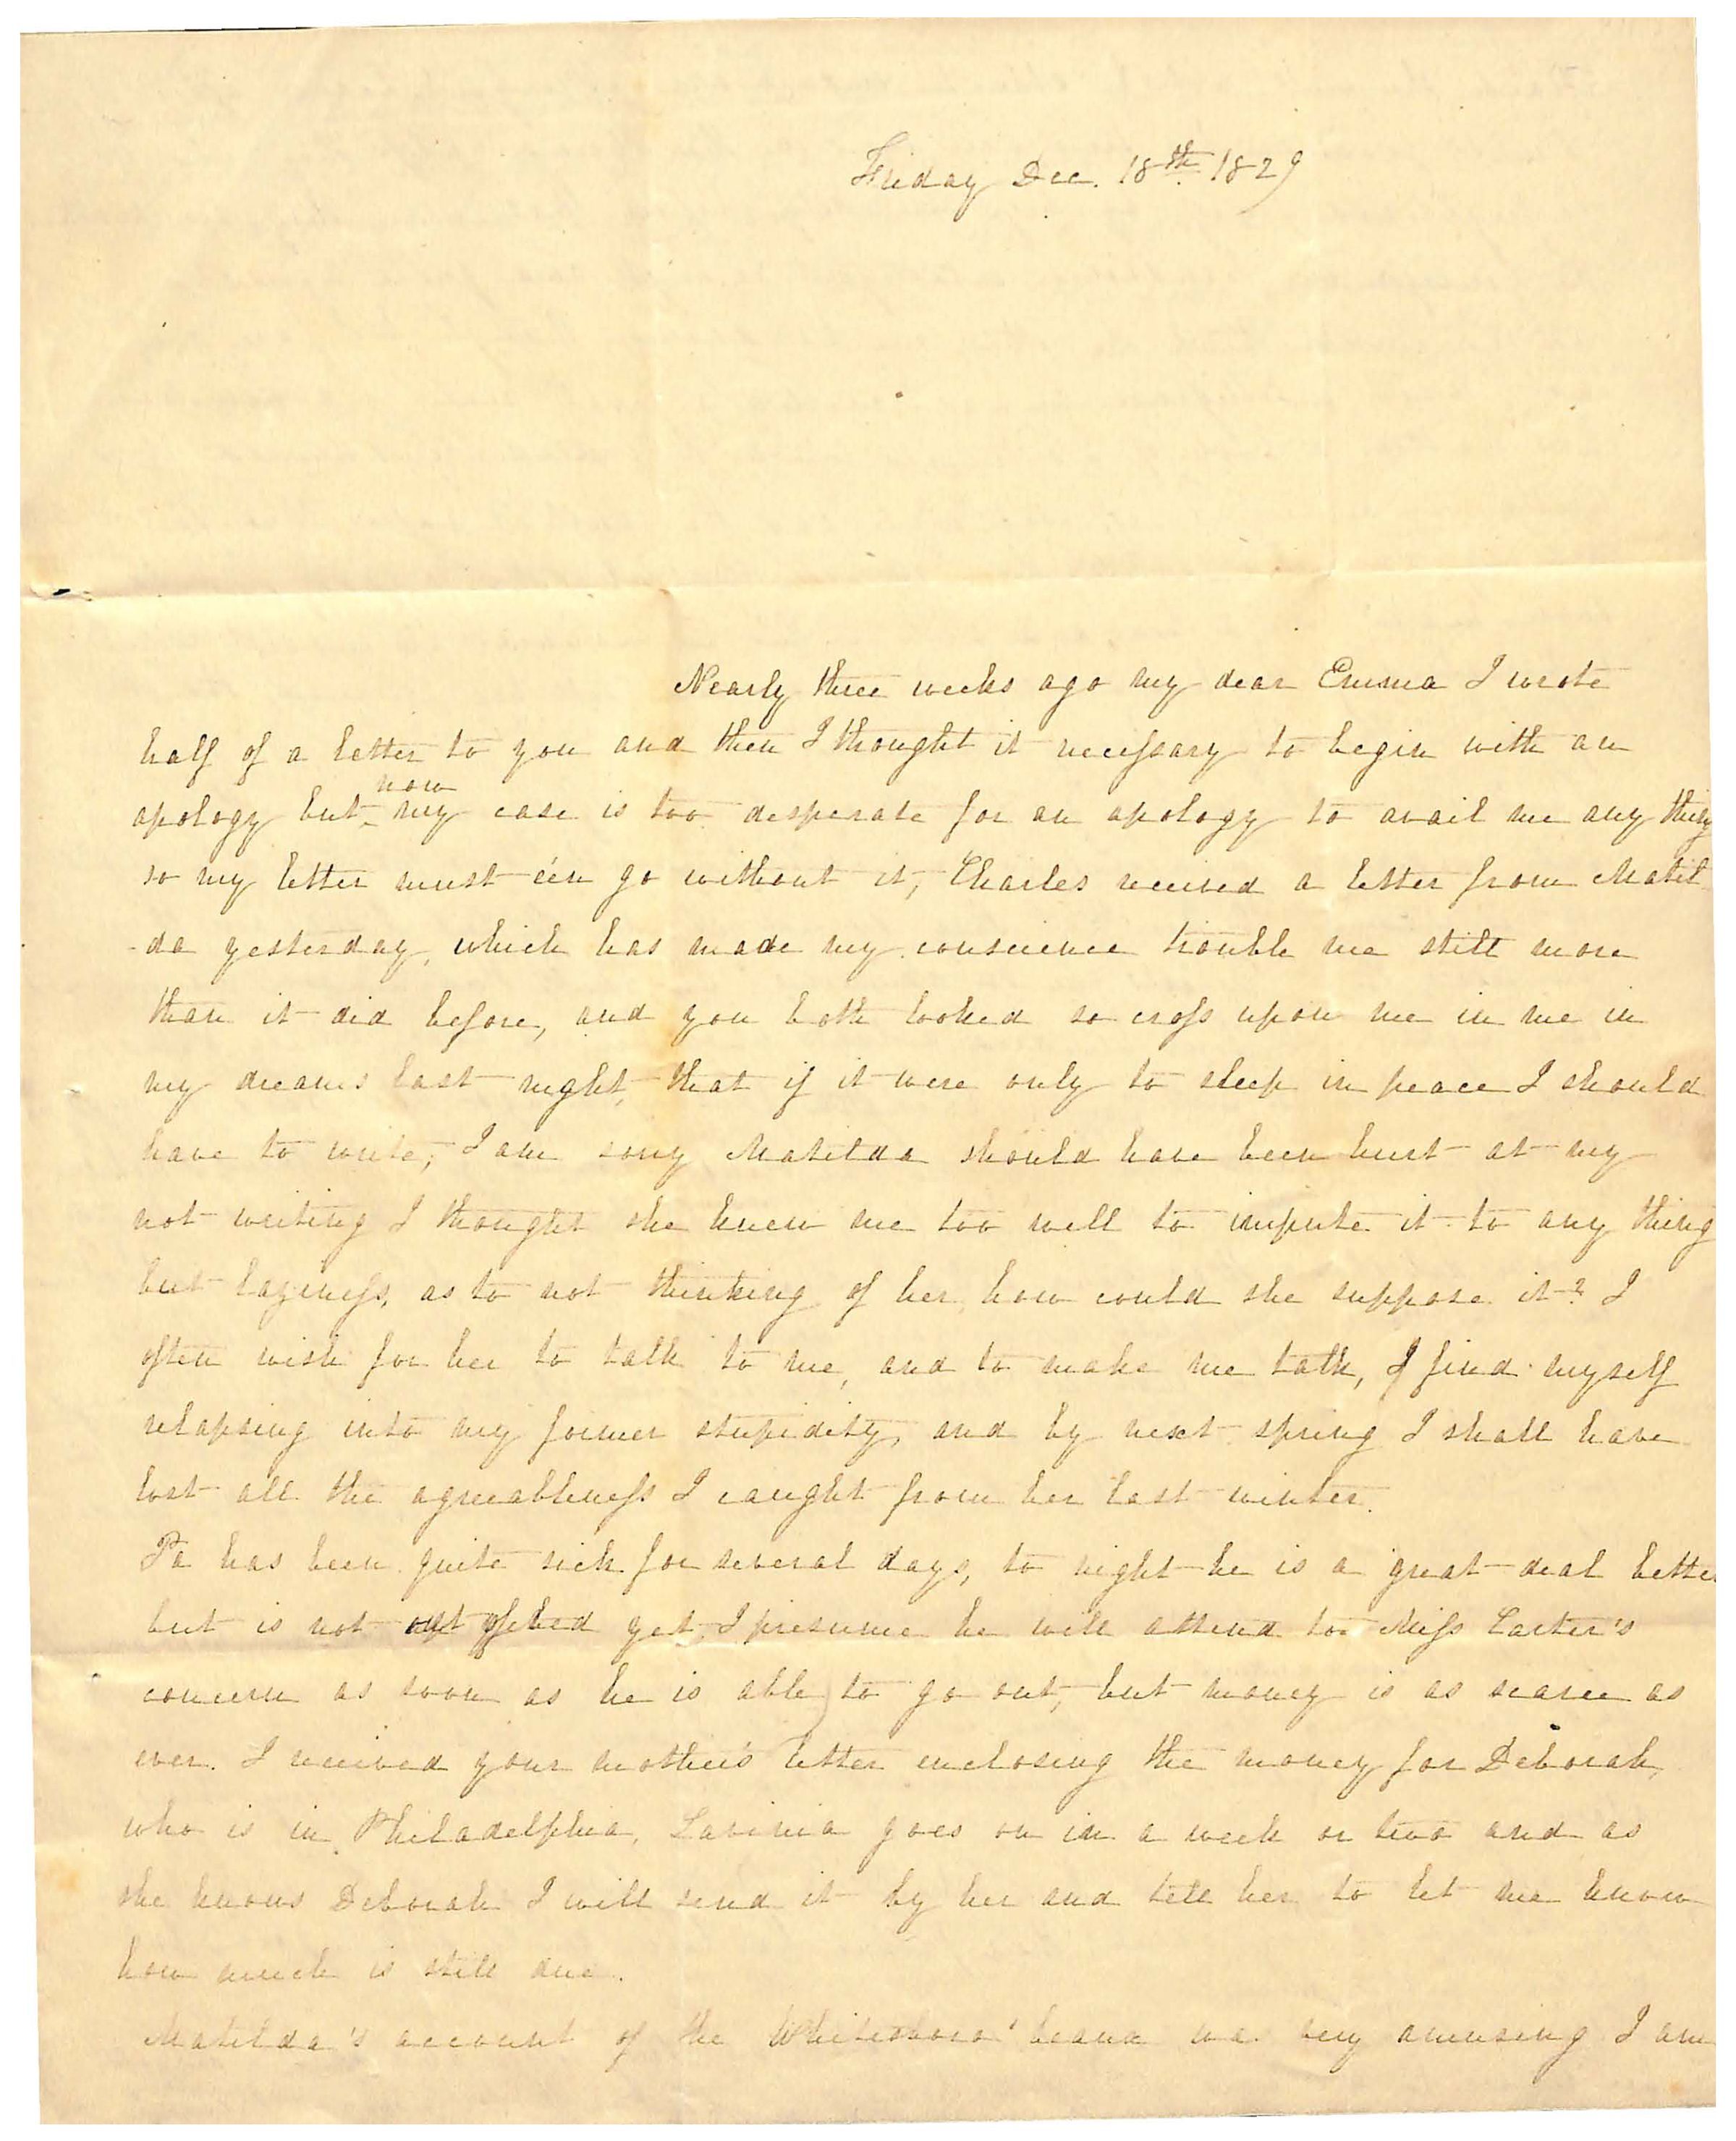 Friday Dec. 18th 1829
Nearly three weeks ago my dear Emma I wrote
half of a letter to you and then I thought it necessary to begin with an
now
apology but my case is too desperate for an apology to avail me any thing
so my letter must e'en go without it, Charles received a letter from Matil
-da yesterday, which has made my conscience trouble me still more
than it did before, and you both looked so cross upon me in me in
my dreams last night, that if it were only to sleep in peace I should
have to write; I am sorry Matilda should have been hurt at my
not writing I thought she knew me too well to impute it to any thing
but lazyness, as to not thinking of her, how could she suppose it? I
often wish for her to talk to me, and to make me talk, I find myself
relapsing into my former stupidity, and by next spring I shall have
lost all the agreeableness I caught from her last winter.
Pa has been quite sick for several days, to night he is a great deal better
but is not out of bed yet, I presume he will attend to Miss Carter's
concern as soon as he is able to go out, but money is as scarce as
ever. I received your mother's letter enclosing the money for Deborah,
who is in Philadelphia, Lavinia goes on in a week or two and as
she knows Deborah I will send it by her and tell her to let me know
how much is still due.
Matilda's account of the Whitesboro' beaux was very amusing I am